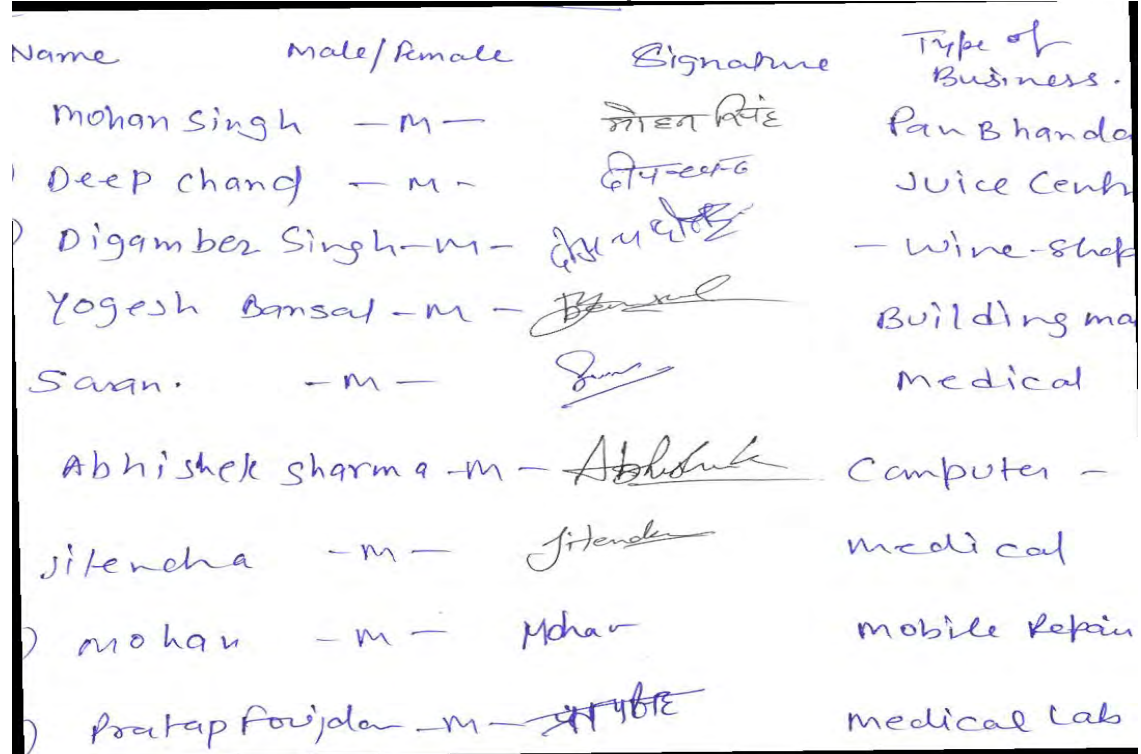 Name Male/Female Signature Type of
Business.
Mohan Singh - M - मोहन सिंह Pan Bhanda
Deep chand - M - दीपचन्द Juice Cent
Digamber Singh - M - - Wine-Shop
Yogesh Bansal - M - Bansal Building ma
Saran. - M - Medical
Abhishek Sharma - M - Abhishek Computer -
Jitendra - M - Jitendra Medical
Mohan - M - Mohan Mobile Repair
Pratap Foujdar - M - Medical Lab